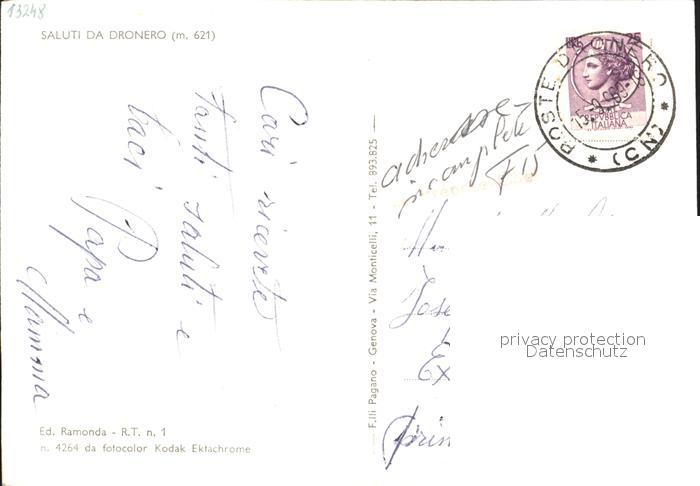 13248
SALUTI DA DRONERO (m. 621)
Cari ricevete
tanti saluti e
baci Papa e
Mamma
Ed. Ramonda - R.T. n. 1
n. 4264 da fotocolor Kodak Ektachrome
F.lli Pagano - Genova - Via Monticelli, 11 - Tel. 893.825
25
POSTE DRONERO
* (CN) *
REPVBBLICA
ITALIANA
adresse
incomplète
F15
Jose
Ex
privacy protection
Datenschutz